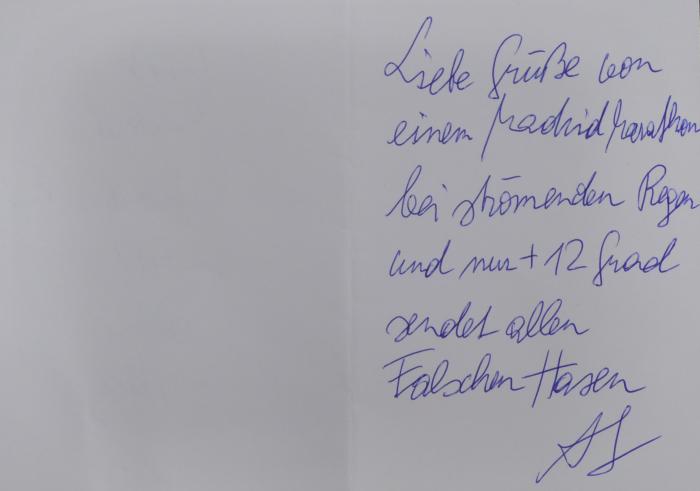 Liebe Grüße von
einem Madrid Marathon
bei strömenden Regen
und nur + 12 Grad
sendet allen
Falschen Hasen